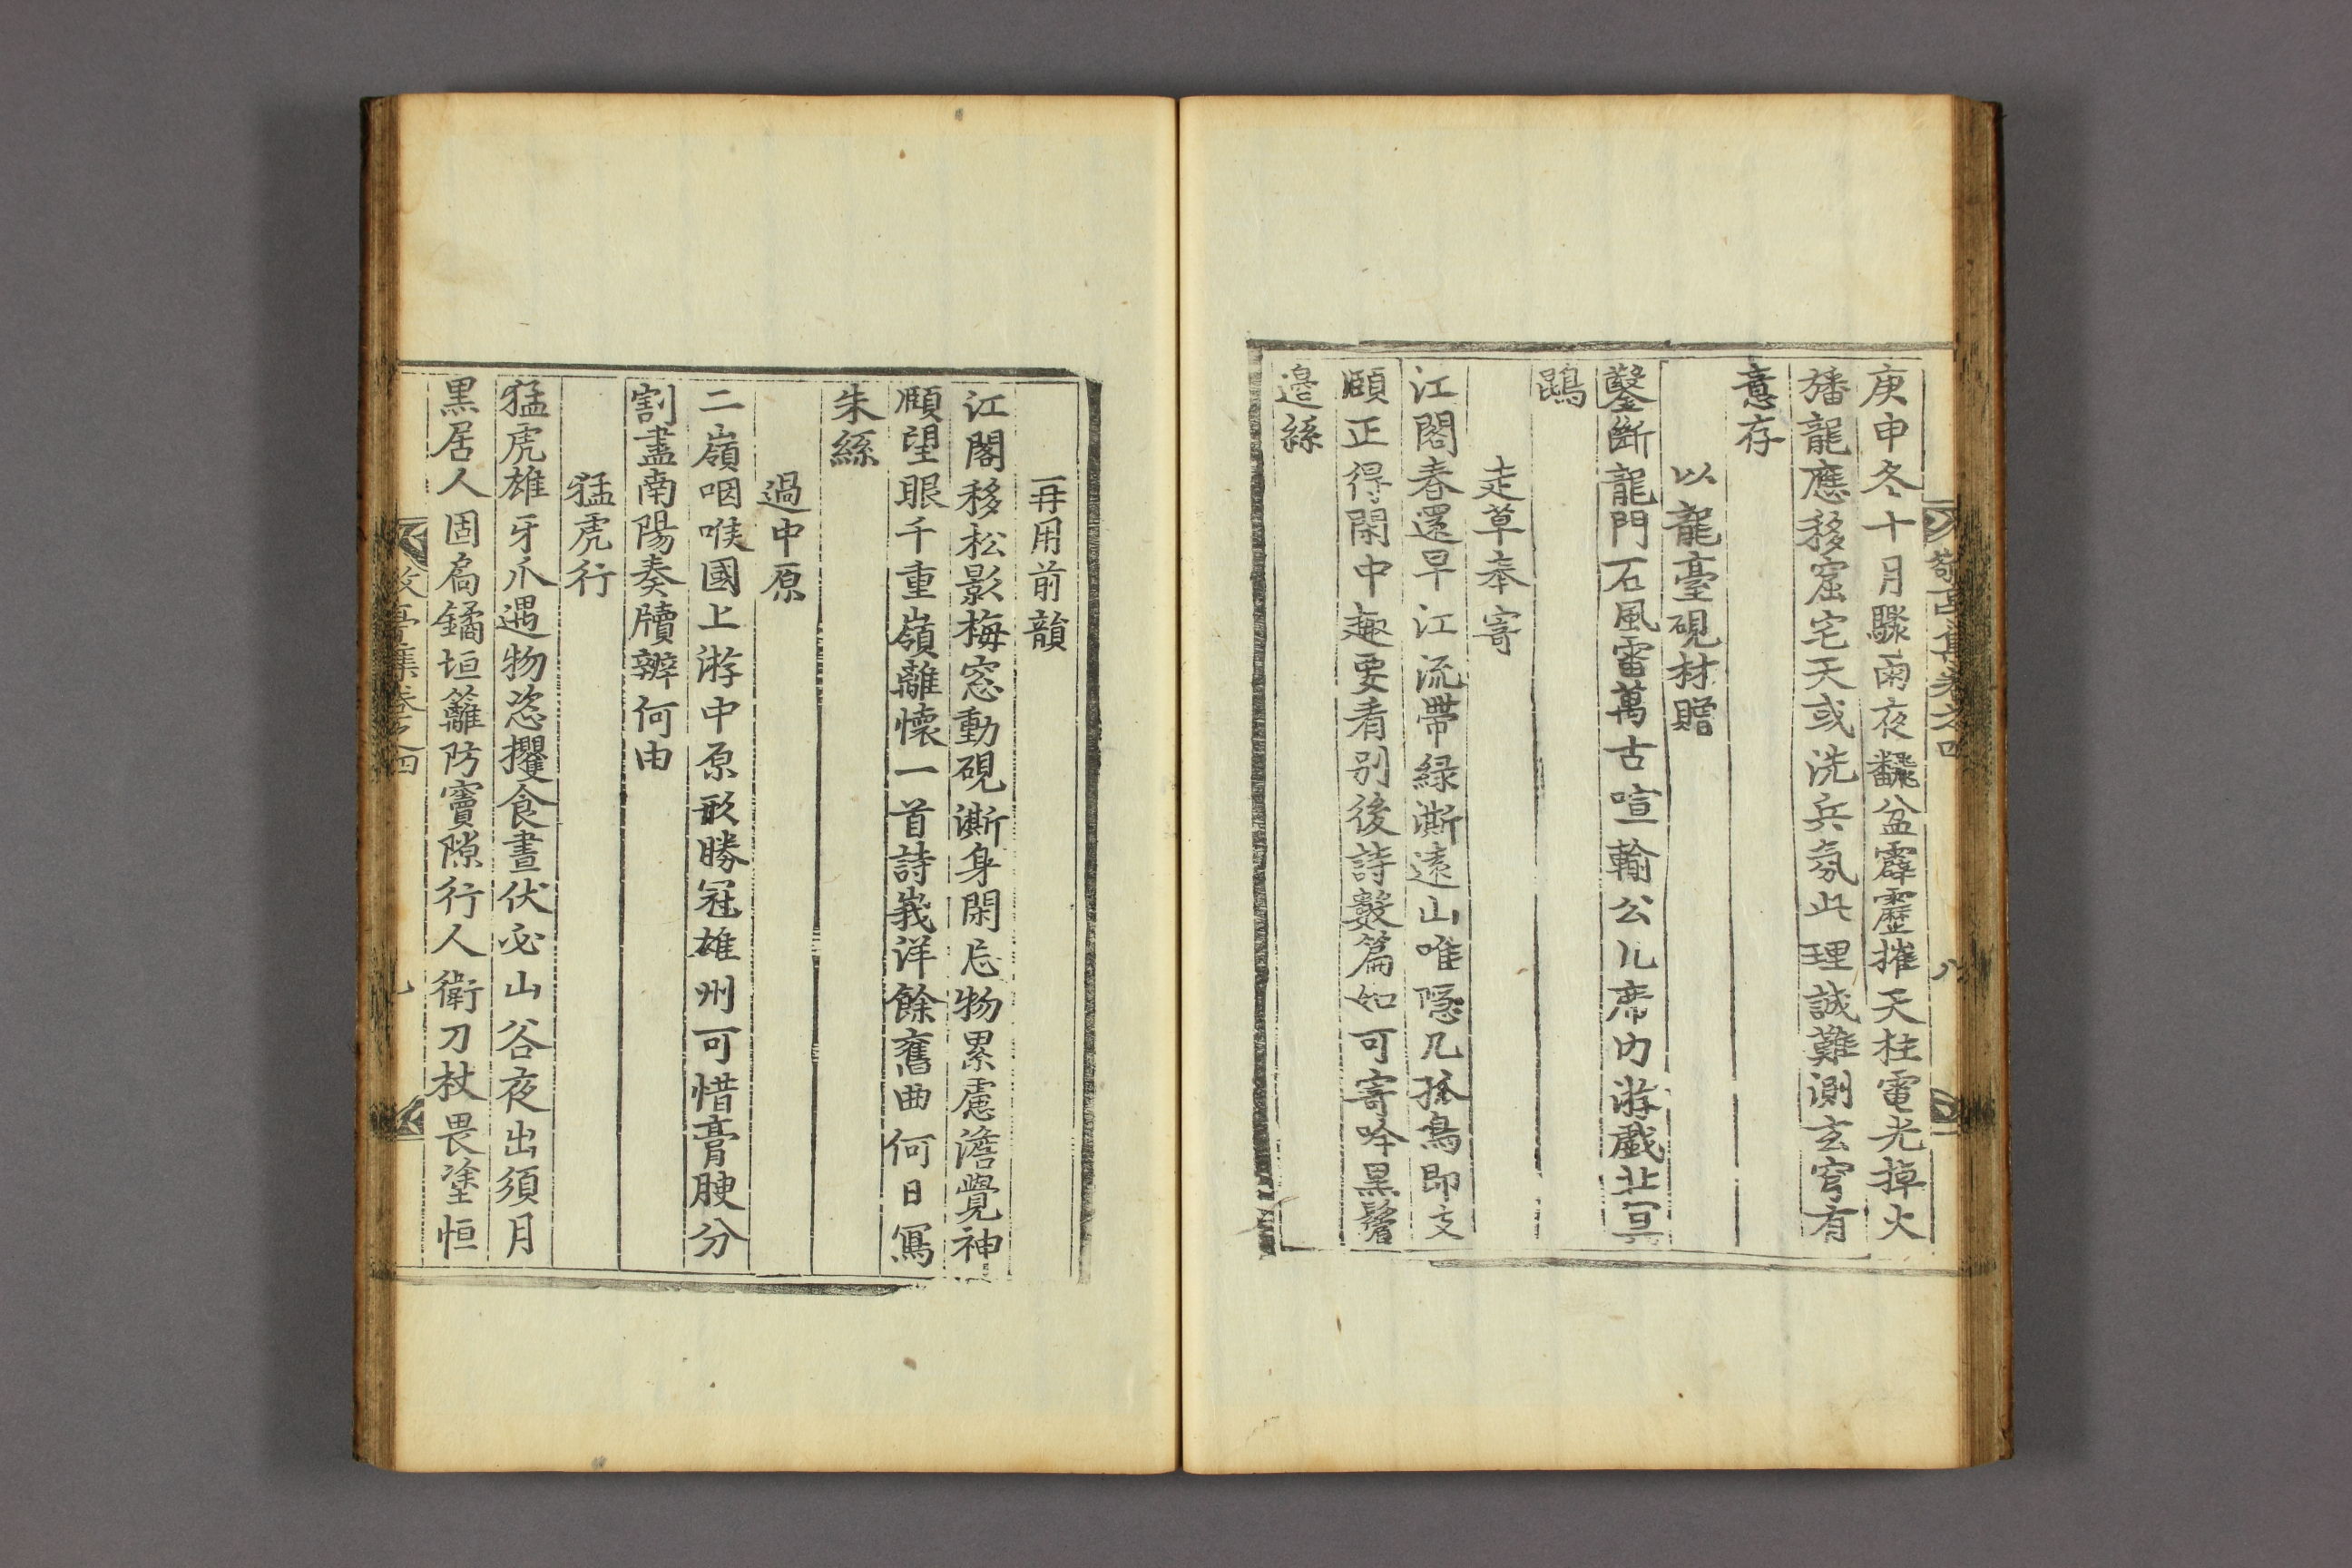 敬亭集卷之四 八
庚申冬十月驟雨夜飜盆霹靂摧天柱電光掉火
旛龍應移窟宅天或洗兵氛此理誠難測玄穹有
意存
以龍臺硯材贈
鑿斷龍門石風雷萬古喧輸公几席內游戱北冥
鵾
走草奉寄
江閣春還早江流帶綠澌遠山唯隱几捈鳥即支
頤正得閑中趣要看別後詩數篇如可寄吟黑鬢
邊絲
再用前韻
江閣移松影梅窓動硯澌身閑忘物累慮澹覺神
頤望眼千重嶺離懷一首詩峩洋餘舊曲何日寫
朱絲
過中原
二嶺咽喉國上游中原形勝冠雄州可惜膏腴分
割盡南陽奏牘辨何由
猛虎行
猛虎雄牙爪遇物恣攫食晝伏必山谷夜出須月
黒居人固扃鐍垣籬防竇隙行人衛刀杖畏塗恒
敬亭集卷之四 九